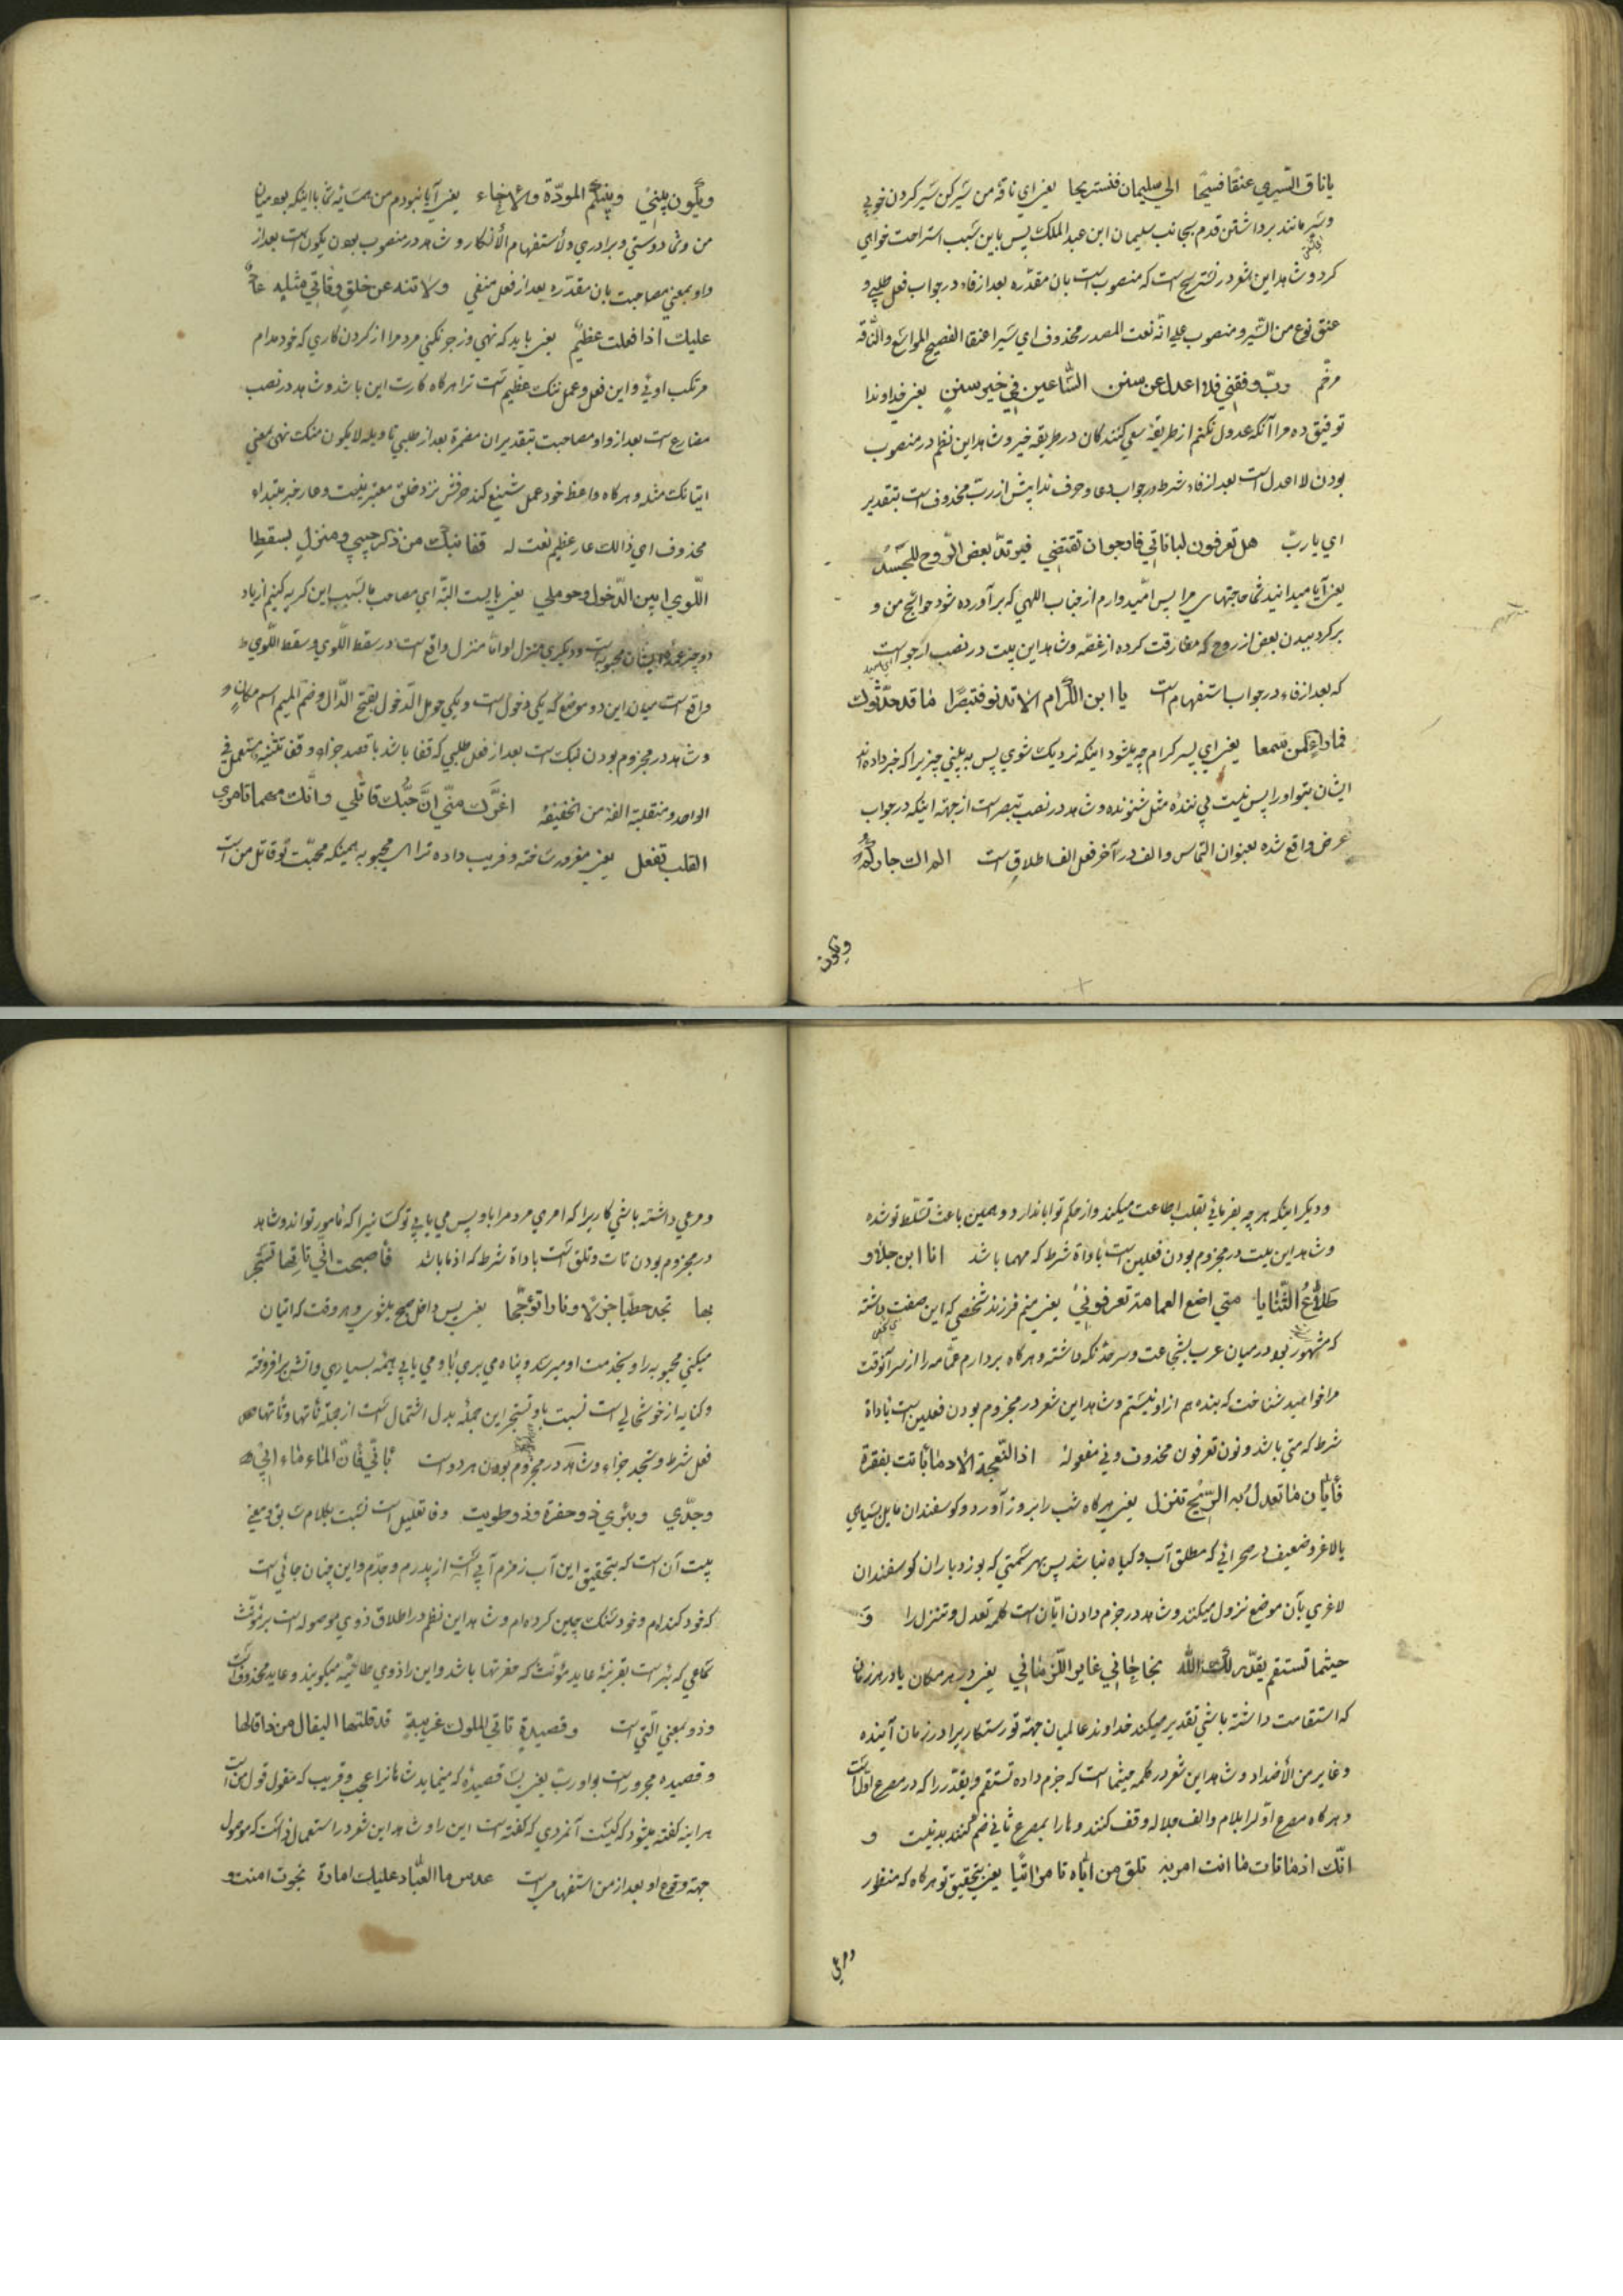 یا ناق السّیری عنقًا فسیحًا الی سلیمان فنستریحا یعنی ای ناقه من سَیر کن سَیر کردن خوبی
و سَیر مانند برداشتن قدم بجانب سلیمان ابن عبد الملک پس باین سَبب استراحت خواهی
کرد و شاهد این شعر در نستریح است که منصوب است بان مقدّره بعد از فاء در جواب فعل طلبی و
عنق نوع من السّیر و منصوب علی انّه نعت المصدر محذوف ای سَیرا عنقا الفصیح المواسَع و النّاقه
مرخّم ربّ وفقنی فلا اعدل عن سنن السّاعین فی خیر سننٍ یعنی خداوندا
توفیق ده مرا آنکه عدول نکنم از طریقهٔ سعی کنندکان در طریقه خیر و شاهد این نظم در منصوب
بودن لا اعدل است بعد از فاء شرط در جواب دعا و حرف ندا پیش از ربّ محذوف است بتقدیر
ای یا ربّ هل تعرفون لباناتی فارجوان تقتضی فیرتدّ بعض الرّوح للجسَد
یعنی آیا میدانید شما حاجتهای مرا پس امّیدوارم از جناب اللهی که برآورده شود حوائج من و
برکردد ببدن بعض از روح که مفارقت کرده از غصّه و شاهد این بیت در نصب ارجو است
که بعد از فاء در جواب استفهام است یا ابن الکرام الا تدنو فتبصرًا ما قد حدّثوک
فما راءٍ کمن سمعا یعنی ای پسر کرام چه میشود اینکه نزدیک شوی پس به بینی چیزیرا که خبر داده اند
ایشان بتو او را پس نیست بینندهٔ مثل شنونده و شاهد در نصب تبصر است از جهة اینکه در جواب
عرض واقع شده بعنوان التماس و الف در آخر فعل الف اطلاق است الم اک جارکم
ویکون
ویکون بینی وبینکم المودّة والاخاء یعنی آیا نبودم من همسَایهٔ شما با اینکه بود میان
من و شما دوستی و برادری و لأستفهام الأنکار و شاهد در منصوب بودن یکون است بعد از
واو بمعنی مصاحبت بان مقدّره بعد از فعل منفی ولا تنه عن خلقٍ وتاتی مثله عار
علیک اذا فعلت عظیم یعنی باید که نهی و زجر نکنی مردم را از کردن کاری که خود مدام
مرتکب اوئی و این فعل و عمل ننک عظیم است ترا هرکاه کارت این باشد و شاهد در نصب
مضارع است بعد از واو مصاحبت بتقدیر ان مضمرة بعد از طلبی تاویله لا یکون منک نهی بمعنی
ایتانک مثله و هرکاه واعظ خود عمل شنیع کند حرفش نزد خلق معتبر نیست و عار خبر مبتداء
محذوف ای ذالک عار عظیم نعت له قفا نبک من ذکری حبیبٍ ومنزلٍ بسقطِ
اللّوی بین الدّخول وحومل یعنی بایست البتّه ای مصاحب ما بسَبب این کریه کنیم از یاد
دو چیز
واقع است میان این دو موضع که یکی دخول است و یکی حومل الدّخول بفتح الدّال و ضمّ المیم اسم مکانٍ و
و شاهد در مجزوم بودن نبک است بعد از فعل طلبی که قفا باشد با قصد جزاء و قفا تثنیّه مستعمل فی
الواحد و منقلبة الفه من الخفیفه اغرّک منّی انّ حبّک قاتلی وانّک مهما تامری
القلب تفعل یعنی مغرور سَاخته و فریب داده ترا ای محبوبه همینکه محبّت تو قاتل من است
و دیکر اینکه هر چه بفرمائی بقلب اطاعت میکند و از حکم تو ابا ندارد و همین باعث تسلّط تو شده
و شاهد این بیت در مجزوم بودن فعلین است باداة شرط که مهما باشد انا ابن جلا و
طلاع الثّنایا متی اضع العمامة تعرفونی یعنی منم فرزند شخصی که این صفت داشته
که مشهور بود در میان عرب بشجاعت و هرکاه بردارم عمّامه را از سر آنوقت
مرا خواهید شناخت که بنده هم از او نیستم و شاهد این شعر در مجزوم بودن فعلین است باداة
شرط که متی باشد و نون تعرفون محذوف و نی مفعوله اذا النّعجة الادماء باتت بقفرة
فایّان ما تعدل به الرّیح تنزل یعنی هرکاه شب را بروز آورد کوسفندان مایل بسَیاهی
یا لاغر و ضعیف در صحرائی که مطلق آب و کیاه نباشد پس بهر سَمتی که بوزد باران کوسفندان
لاغری بآن موضع نزول میکند و شاهد در جزم دادن ایّان است کلمه تعدل و تنزل را و
حیثما تستقم یقدّر لک الله نجاحًا فی غابر الازمان یعنی در هر مکان یا در هر زمان
که استقامت داشته باشی تقدیر میکند خداوند عالمیان جهة تو رستکاری را در زمان آینده
و غابر من الأضداد و شاهد این شعر در کلمه حیثما است که جزم داده تستقم و یقدّر را که در مصرع اوّل است
و هرکاه مصرع اوّلرا بلام و الف جلاله وقف کنند و ها را بمصرع ثانی ضم کنند بد نیست و
انّک اذ ما تات ما انت امر به تلق من ایّاه تامر اتیًا یعنی بتحقیق تو هرکاه که منظور
و مرعی داشته باشی کاریرا که امری مردم را باو پس می یابی تو کسَانیرا که مامور تواند و شاهد
در مجزوم بودن تات و تلق است باداة شرط که اذ ما باشد فأصبحت انّی تأتها تستجر
بها تجد حطبًا جزلًا ونارا تؤجّجا یعنی پس داخل صبح میشوی و هر وقت که اتیان
میکنی محبوبه را و بخدمت او میرسَد و پناه می بری باو می یابی هیمهٔ بسیاری و آتش برافروخته
و کنایه از خوشحالی است نسبت باو و تستجر این جمله بدل اشتمال است از جملهٔ تأتها و تأتها
فعل شرط و تجد جزاء و شاهد در مجزوم بودن هر دو است فانّ الماء ماء ابی
وجدّی وبئری ذو حفرت وذو طویت و فا تعلیل است نسبت بکلام سَابق و معنی
بیت آن است که بتحقیق این آب زمزم آبی است از پدرم و جدّم و این چنان جائی است
که خود کنده ام و خود سَنک چین کرده ام و شاهد این نظم در اطلاق ذوی موصوله است بر مؤنّث
سَماعی که بئر است بقرینهٔ عاید مؤنّث که حفرتها باشد و این را ذوی طائیّه میکویند و عاید محذوف است
و ذو بمعنی الّتی است وقصیدةٍ تاتی الملوک غریبةٍ قد قلتها لیقال من ذا قالها
و قصیده مجرور است بواو ربّ یعنی بسَا قصیدهٔ که میاید شاهانرا عجب و غریب که مقول قول من است
هر اینه کفته میشود که کیست آنمردی که کفته است این را و شاهد این شعر در استعمال ذا است که موصول
جهة وقوع او بعد از من استفهامی است عدس ما لعبّاد علیک امارة نجوت امنت و